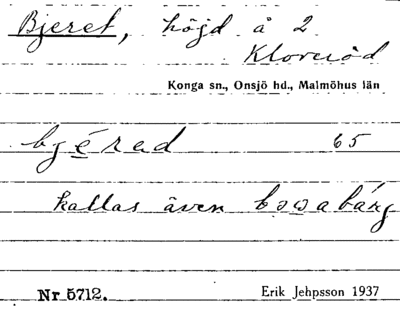 Bjeret, höjd å 2
Kloveröd
Konga sn., Onsjö hd., Malmöhus län
bjérad 65
kallas även bowabáŋ
Nr 5712. Erik Jehpsson 1937